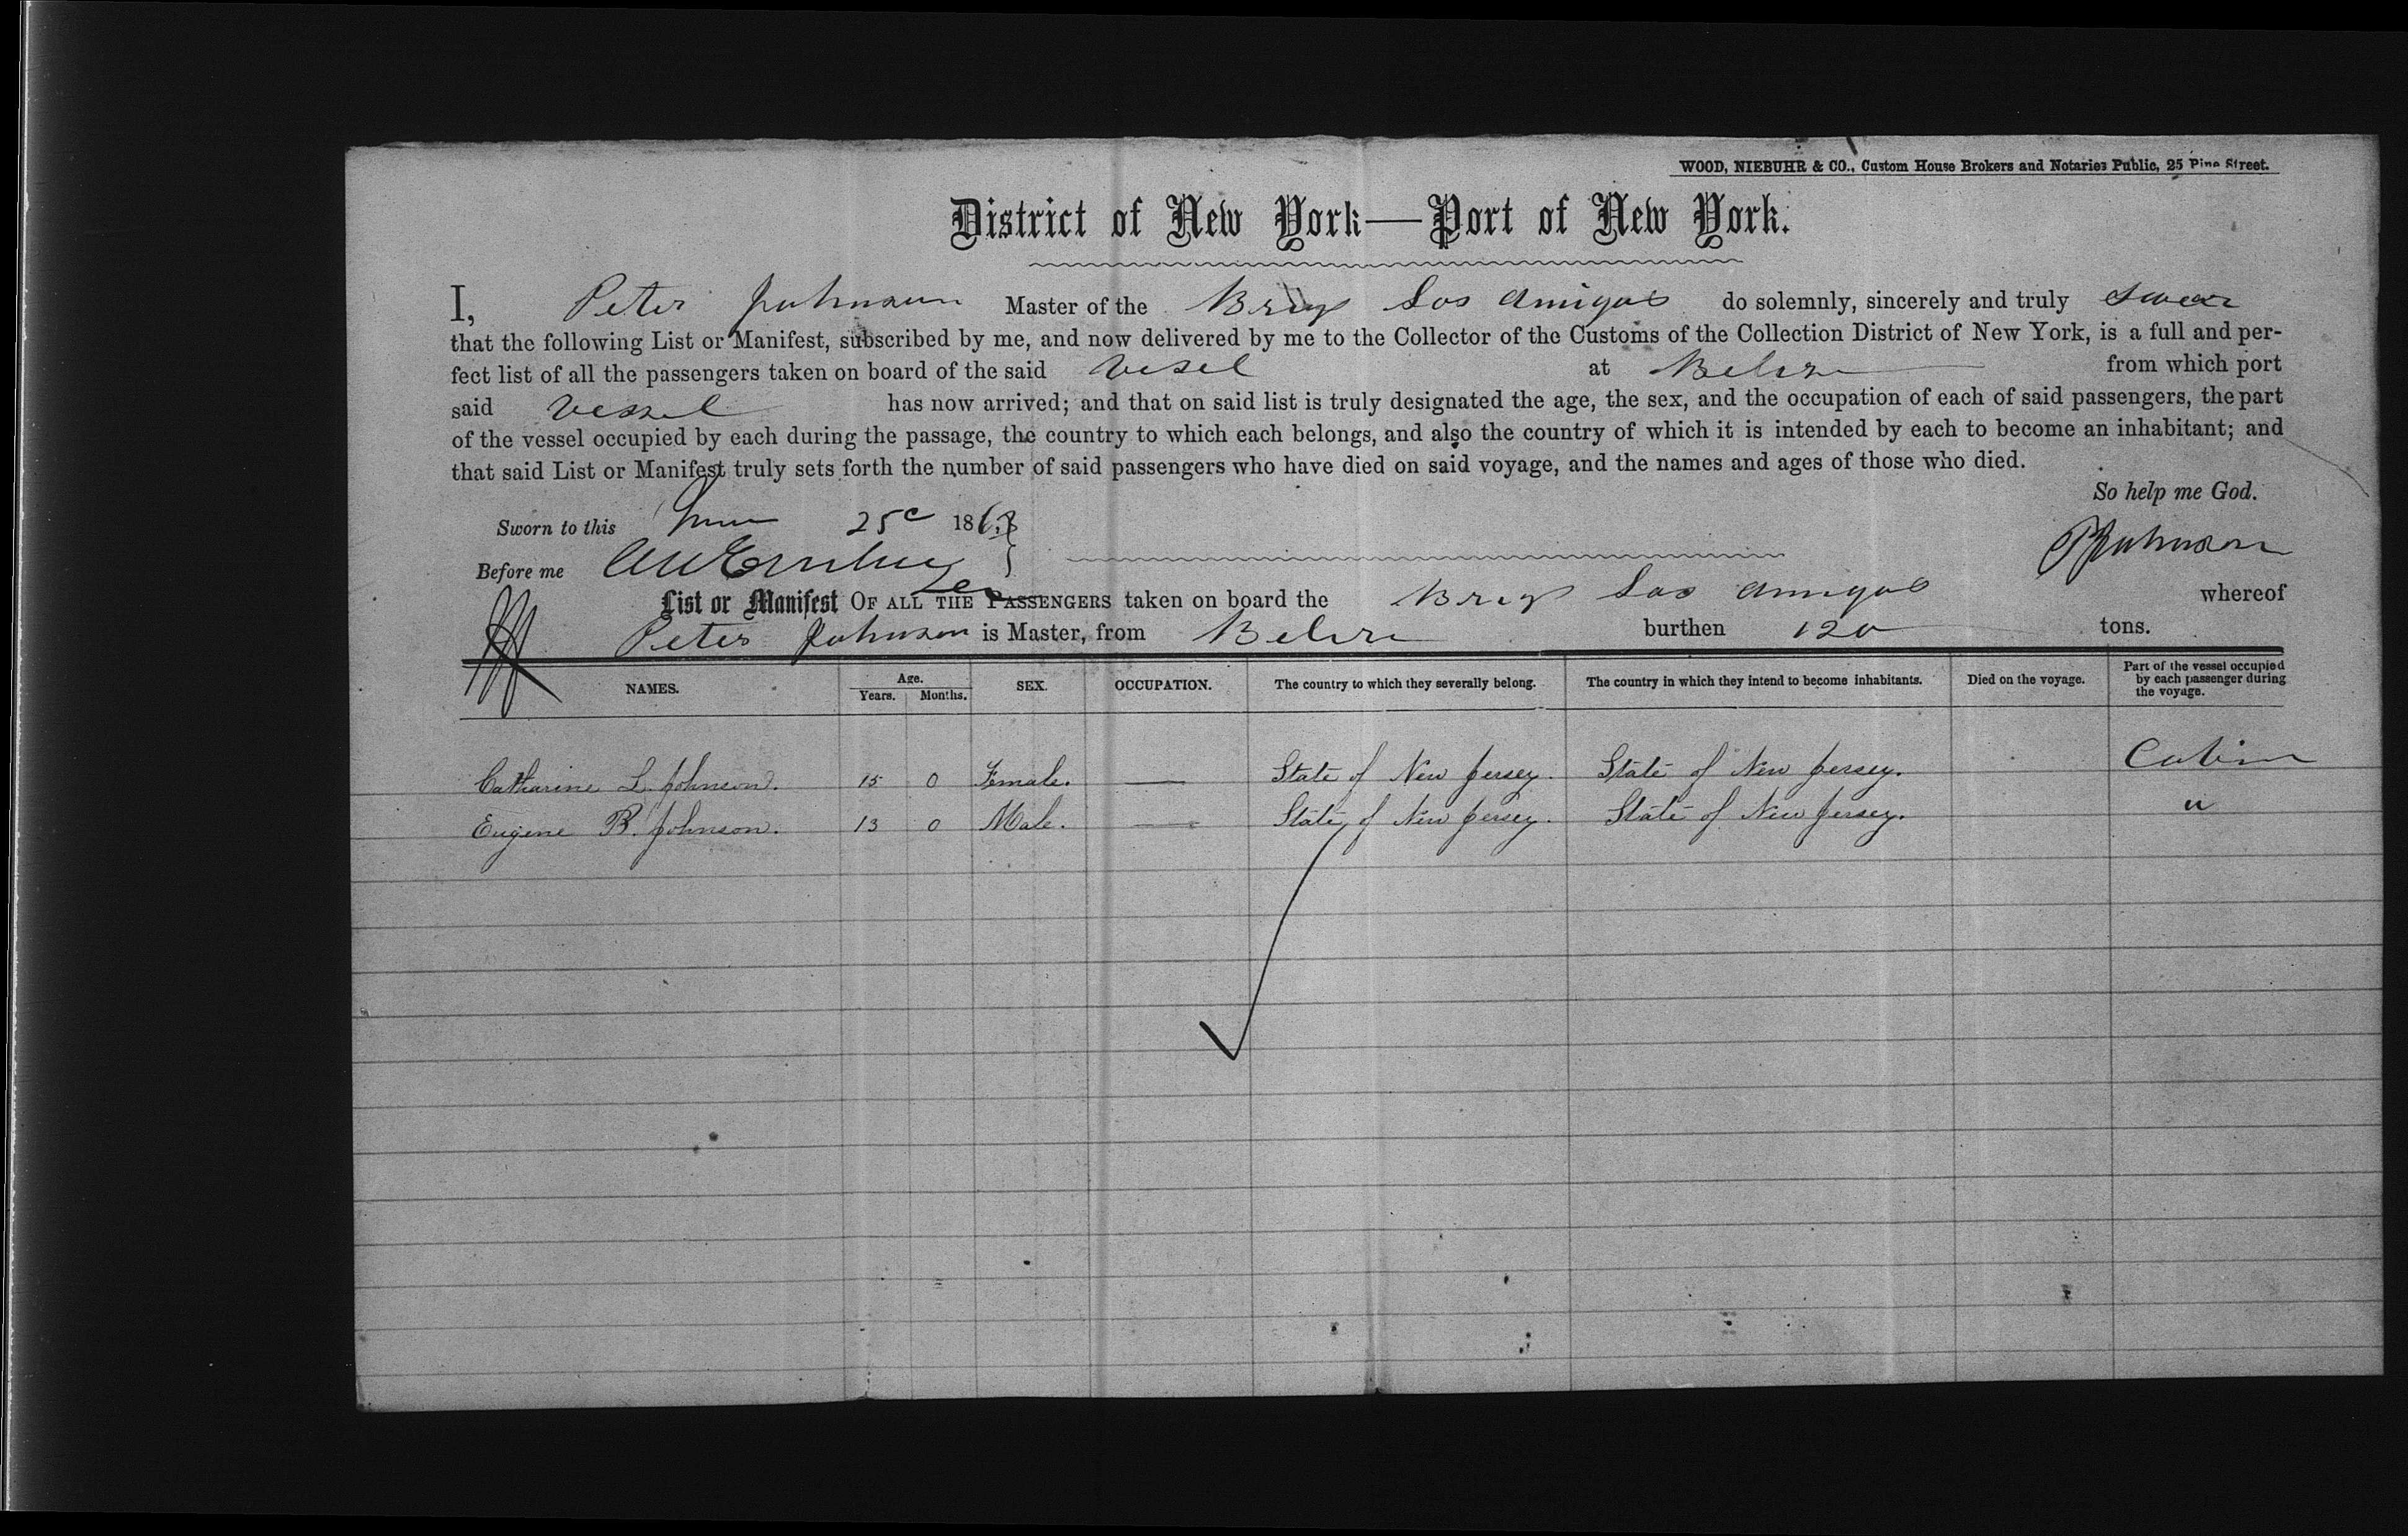 WOOD, NIEBUHR & CO., Custom House Brokers and Notaries Public, 25 Pine Street.
District of New York—Port of New York.
I, Peter Johnson Master of the Brig Los Amigos do solemnly, sincerely and truly swear
that the following List or Manifest, subscribed by me, and now delivered by me to the Collector of the Customs of the Collection District of New York, is a full and per-
fect list of all the passengers taken on board of the said Vesel at Belize from which port
said Vessel has now arrived; and that on said list is truly designated the age, the sex, and the occupation of each of said passengers, the part
of the vessel occupied by each during the passage, the country to which each belongs, and also the country of which it is intended by each to become an inhabitant; and
that said List or Manifest truly sets forth the number of said passengers who have died on said voyage, and the names and ages of those who died.
So help me God.
Sworn to this June 25 1863
P Johnson
Before me
List or Manifest OF ALL THE PASSENGERS taken on board the Brig Los Amigos whereof
Peter Johnson is Master, from Belize burthen 120 tons.
NAMES. Age. Years. Months. SEX. OCCUPATION. The country to which they severally belong. The country in which they intend to become inhabitants. Died on the voyage. Part of the vessel occupied by each passenger during the voyage.
Catharine L. Johnson. 15 0 Female. — State of New Jersey. State of New Jersey. Cabin
Eugene B. Johnson. 13 0 Male. — State of New Jersey. State of New Jersey. "